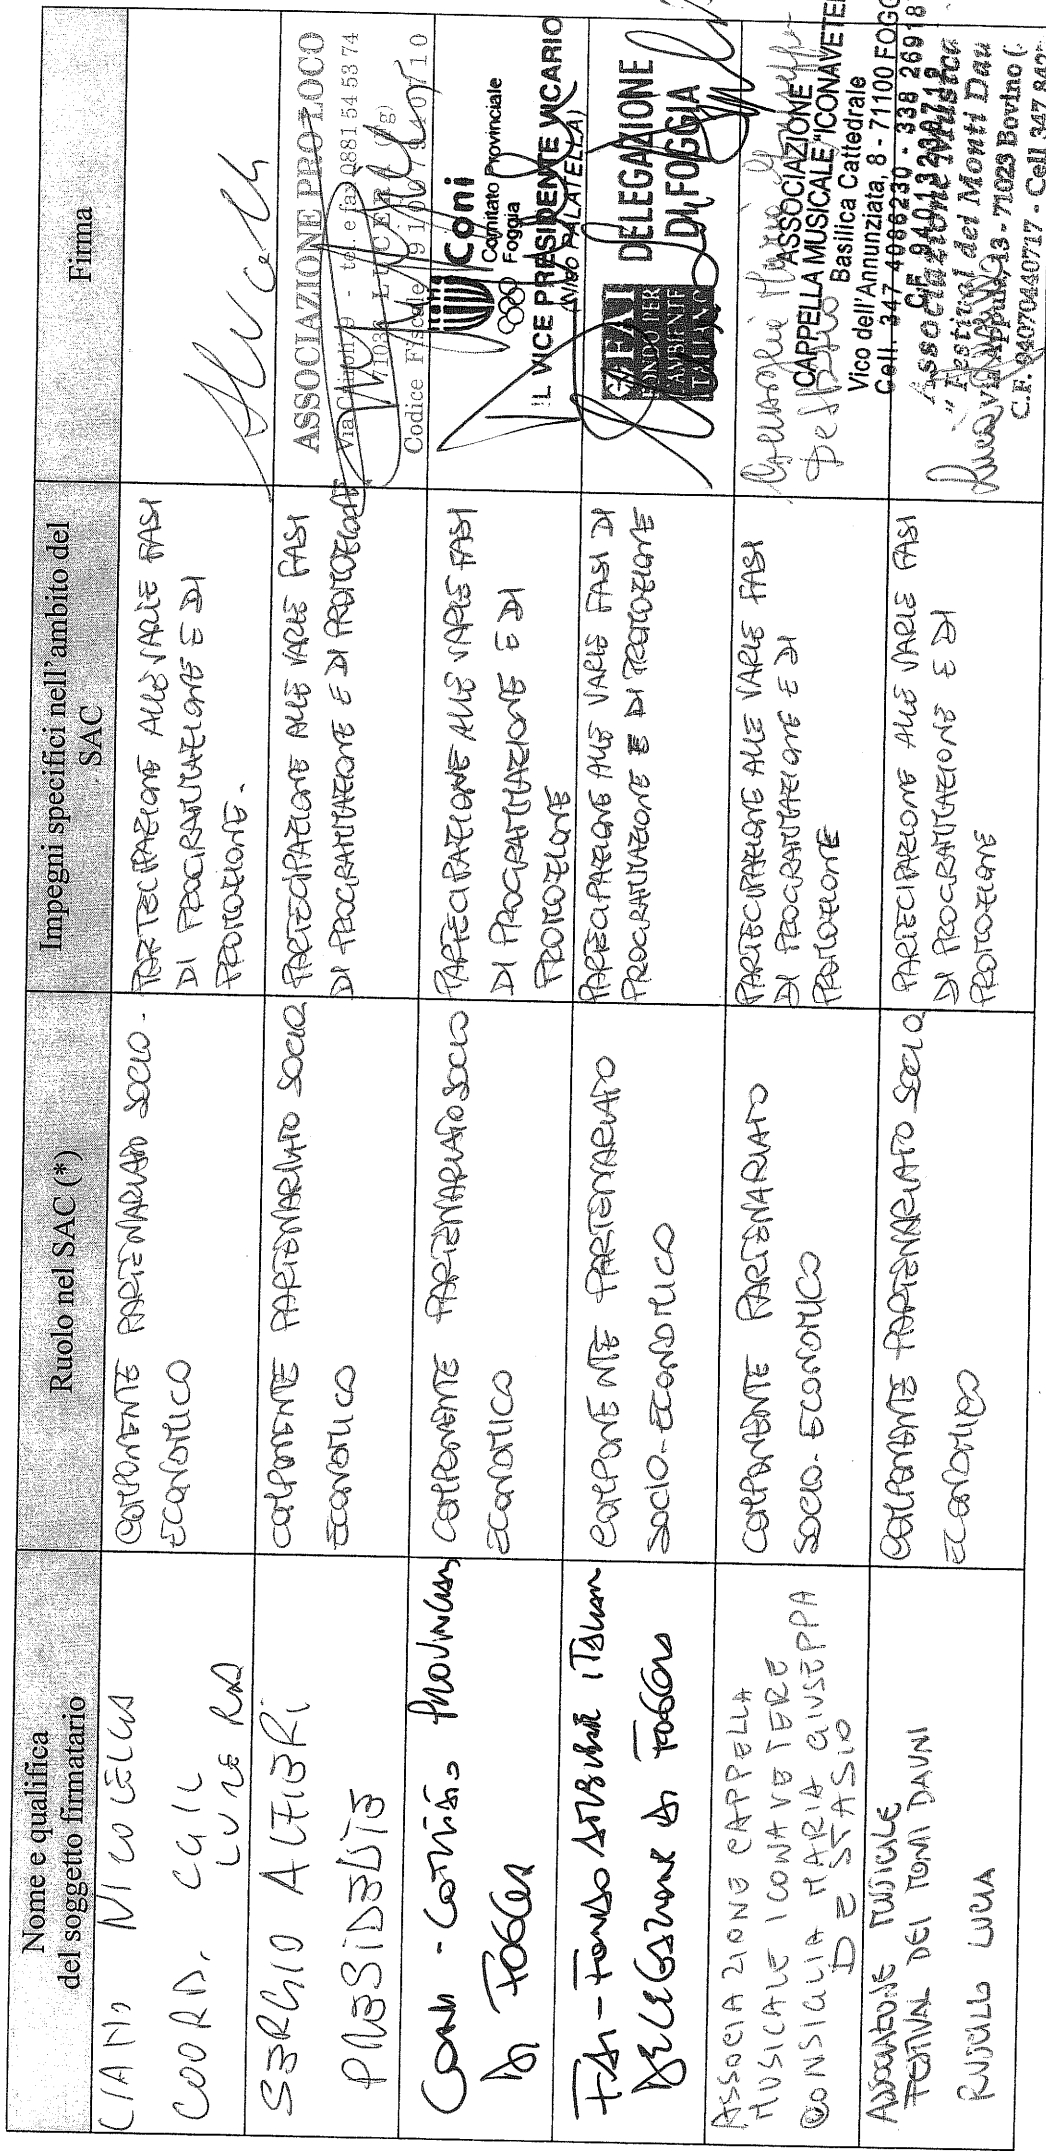 Nome e qualifica
del soggetto firmatario
Ruolo nel SAC (*)
Impegni specifici nell'ambito del
SAC
Firma
CIANO NICOLELLA
COORD. CGIL
COMPONENTE PARTENARIATO SOCIO-
ECONOMICO
PARTECIPAZIONE ALLE VARIE FASI
DI PROGRAMMAZIONE E DI
PROMOZIONE.
SERGIO ALTIERI
PRESIDENTE
COMPONENTE PARTENARIATO SOCIO
ECONOMICO
PARTECIPAZIONE ALLE VARIE FASI
DI PROGRAMMAZIONE E DI PROMOZIONE
ASSOCIAZIONE PROLOCO
- tel. e fax 0881 54 53 74
71036 LUCERA (Fg)
Codice Fiscale
CONI - COMITATO PROVINCIALE
DI FOGGIA
COMPONENTE PARTENARIATO SOCIO
ECONOMICO
PARTECIPAZIONE ALLE VARIE FASI
DI PROGRAMMAZIONE E DI
PROMOZIONE
Coni
Comitato Provinciale
Foggia
IL VICE PRESIDENTE VICARIO
PALATELLA)
FAI - FONDO AMBIENTE ITALIANO
DELEGAZIONE DI FOGGIA
COMPONENTE PARTENARIATO
SOCIO-ECONOMICO
PARTECIPAZIONE ALLE VARIE FASI DI
PROGRAMMAZIONE E DI PROMOZIONE
FAI
FONDO PER
L'AMBIENTE
ITALIANO
DELEGAZIONE
DI FOGGIA
ASSOCIAZIONE CAPPELLA
MUSICALE ICONAVETERE
CONSIGLIA MARIA GIUSEPPA
DE STASIO
COMPONENTE PARTENARIATO
SOCIO-ECONOMICO
PARTECIPAZIONE ALLE VARIE FASI
DI PROGRAMMAZIONE E DI
PROMOZIONE
ASSOCIAZIONE
CAPPELLA MUSICALE "ICONAVETE
Basilica Cattedrale
Vico dell'Annunziata, 8 - 71100 FOGG
Cell. 347 4086230 - 338 26918
ASSOCIAZIONE MUSICALE
FESTIVAL DEI MONTI DAUNI
LUCIA
COMPONENTE PARTENARIATO SOCIO
ECONOMICO
PARTECIPAZIONE ALLE VARIE FASI
DI PROGRAMMAZIONE E DI
PROMOZIONE
Associazione Musica
"Festival dei Monti Dau
Via Appula, 13 - 71023 Bovino (
C.F. 94070440717 - Cell 347 842